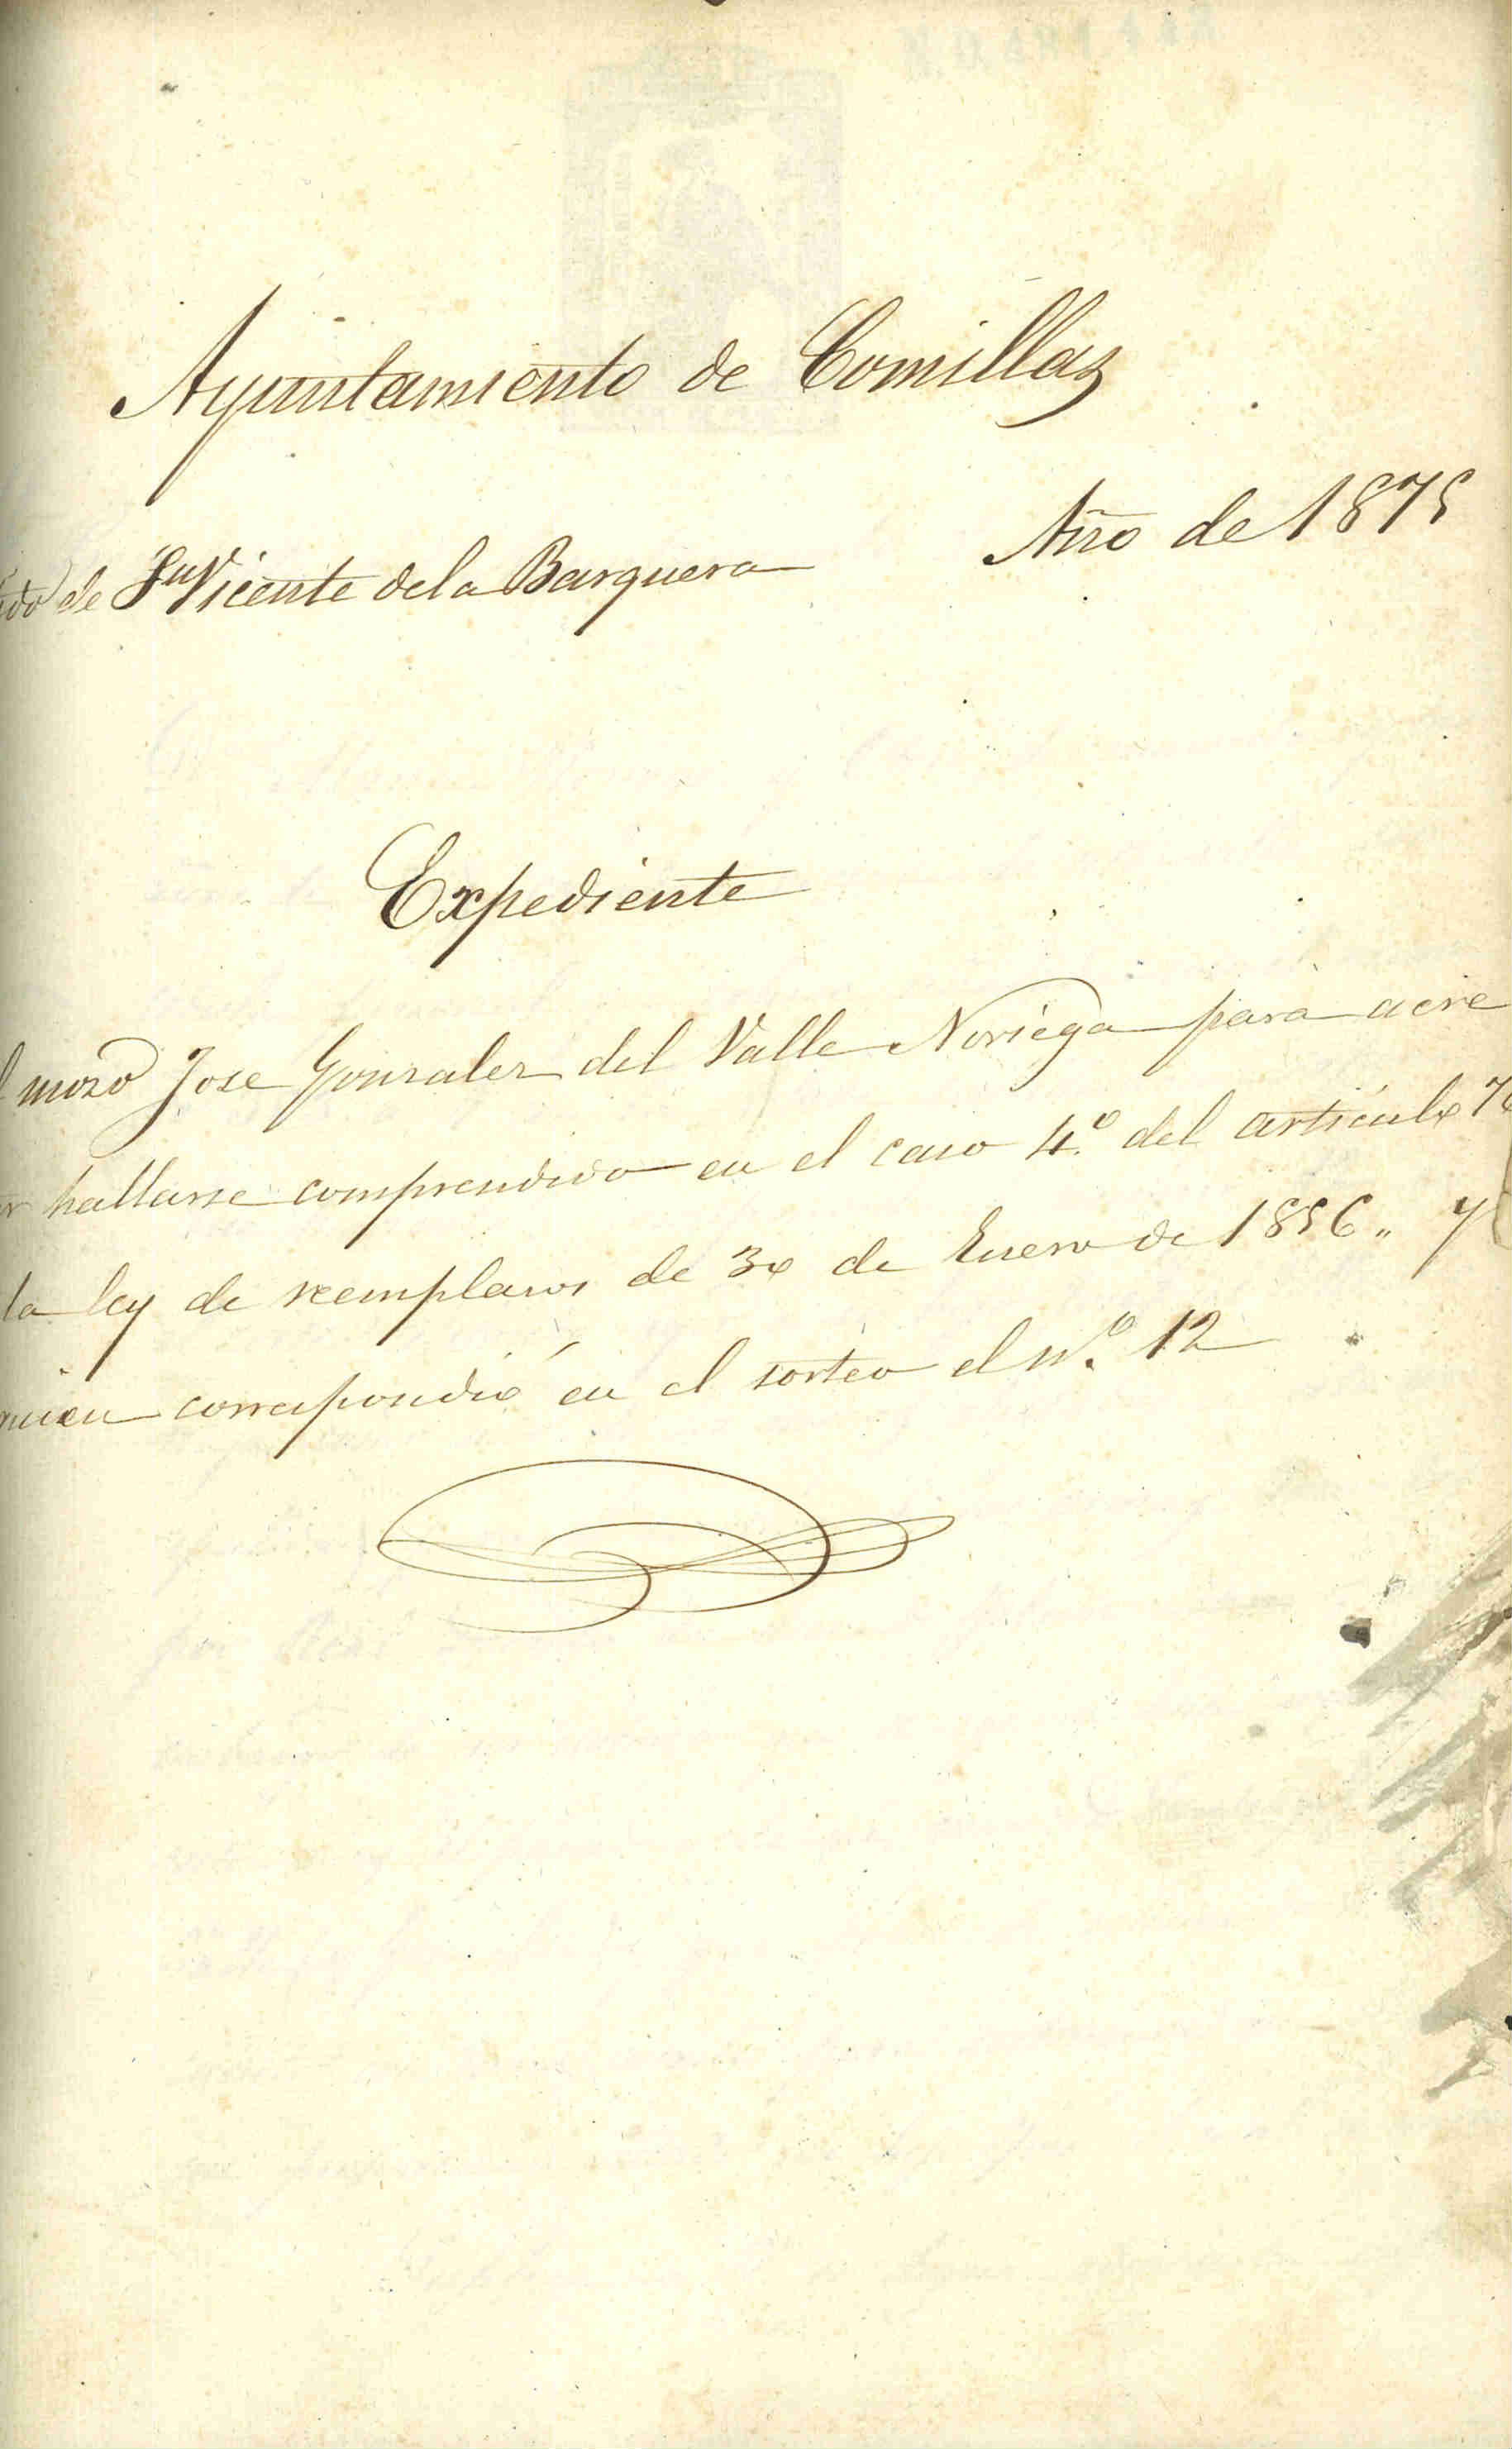 Ayuntamiento de Comillas
Año de 1875
ido de Sn Vicente de la Barquera
Expediente
l mozo Jose Gonzalez del Valle Noriega para acre
r hallarse comprendido en el caso 4.º del articulo 7
la ley de reemplazos de 30 de Enero de 1856 .. y
uien correspondió en el sorteo el n.º 12